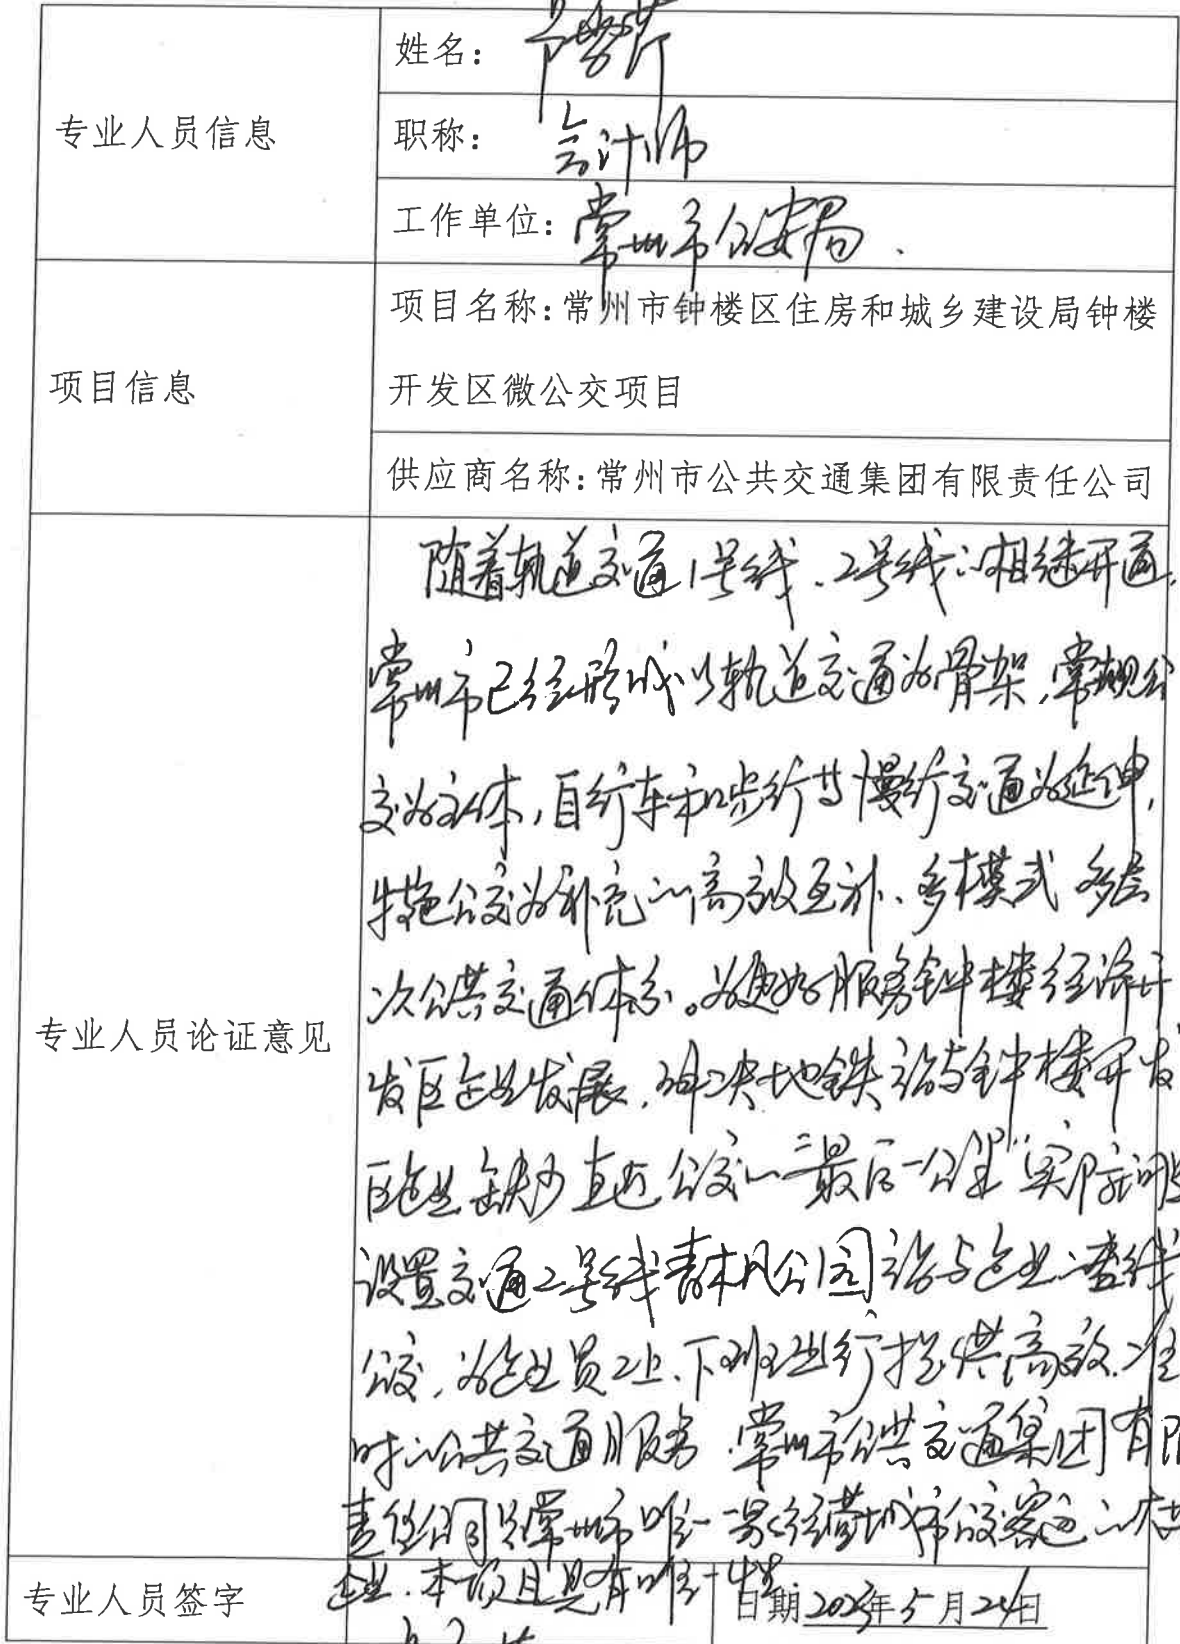 专业人员信息
姓名：
职称：会计师
工作单位：常州市公安局.
项目信息
项目名称：常州市钟楼区住房和城乡建设局钟楼
开发区微公交项目
供应商名称：常州市公共交通集团有限责任公司
专业人员论证意见
随着轨道交通1号线、2号线的相继开通,
常州市已经形成以轨道交通为骨架,常规公
交为主体,自行车和步行等慢行交通为延伸,
特色公交为补充的高效互补、多模式 多层
次公共交通体系。为更好服务钟楼经济开
发区企业发展,解决地铁站与钟楼开发
区企业缺少直达公交的"最后一公里"实际问题
设置交通2号线青枫公园站与企业的专线
公交,为企业员工上、下班出行提供高效、准
时的公共交通服务.常州市公共交通集团有限
责任公司是常州市唯一一家经营城市公交客运的
企业.本项目具有唯一性
专业人员签字
日期2023年5月24日